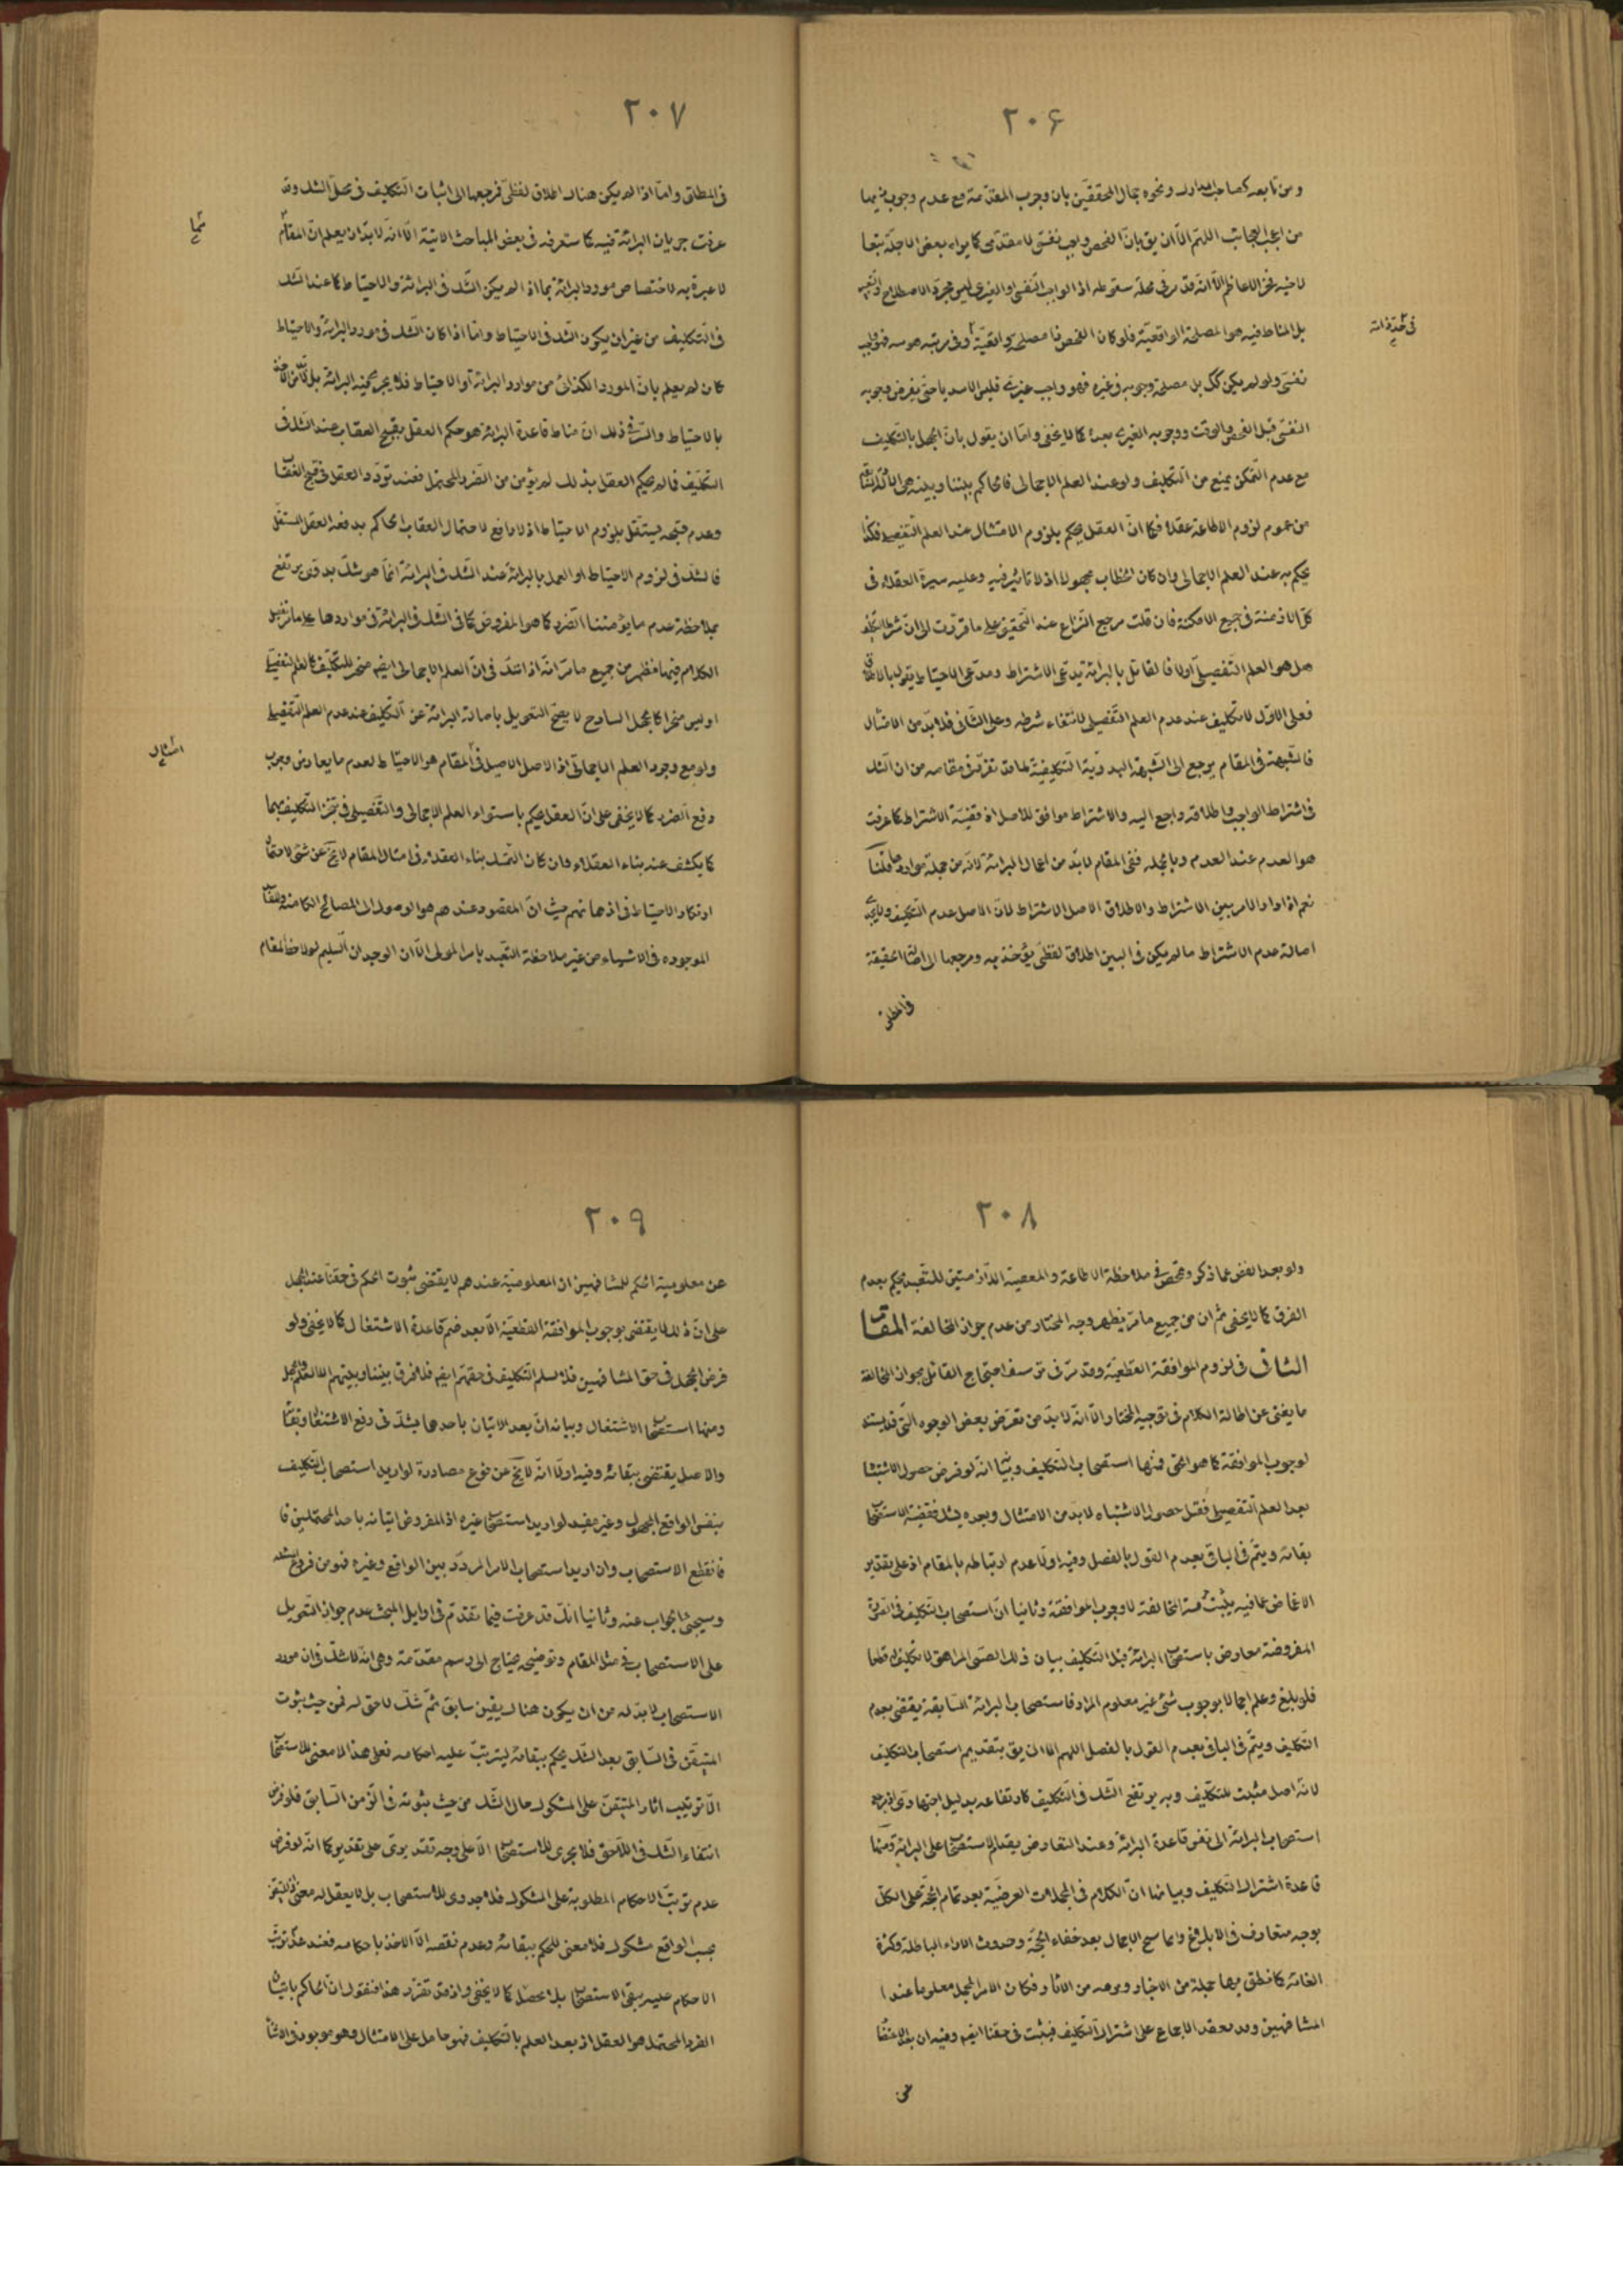 ٢٠۶
ومن تابعه كصاحب المدارك ونحوه جمال المحققين بان وجوب المقدّمة مع عدم وجوب ذيها
من اعجب العجائب اللهم الّا ان يق بانّ الفحص واجب نفسى لا مقدّمى كما يراه بعض الاجلّة تبعا
لاخيه فخر الاعاظم الّا انه قد مر فى محلّه سقوطه اذ الواجب النفسى او الغيرى ليس مجرّد الاصطلاح
بل المناط فيه هو المصلحة الواقعيّة فلو كان الفحص ذا مصلحة واقعيّة وفى مرتبة هو سه فهو واجب
فى حدّ ذاته
نفسى ولو لم يكن كك بل مصلحة وجوبه فى غيره فهو واجب غيرى فليس الامر يا حتى يفرض وجوبه
النفسى قبل الفحص والوقت ووجوبه الغيرى بعدهٔ كما لا يخفى وامّا ان يقول بانّ الجهل بالتكليف
مع عدم التمكن يمنع من التكليف ولو عند العلم الاجمالى فالحاكم بيننا وبينه هى
من عموم لزوم الاطاعة عقلا فكما انّ العقل يحكم بلزوم الامتثال عند العلم التفصيلى فكذا
يحكم به عند العلم الاجمالى وان كان الخطاب مجهولا اذ لا تاثير فيه وعليه سيرة العقلاء فى
كلّ الازمنة فى جميع الامكنة فان قلت مرجع النزاع عند التحقيق على ما قرّرت الى انّ شرط التكليف
هل هو العلم التفصيلى اولا فالقائل بالبرائة يدّعى الاشتراط ومدّعى الاحتياط يقول بالاطلاق
فعلى الاوّل لا تكليف عند عدم العلم التفصيلى لانتفاء شرطه وعلى الثانى فلا بدّ من الامتثال
فالشبهة فى المقام يرجع الى الشبهة البدويّة التكليفيّة لما قد تقرّر فى مقامه من ان الشك
فى اشتراط الواجب واطلاقه راجع اليه والاشتراط موافق للاصل اذ قضيّة الاشتراط كما عرفت
هو العدم عند العدم وبالجملة ففى المقام لا بدّ من اعمال البرائة لانّه من جملة مواردها قلنا
نعم اذا دار الامر بين الاشتراط والاطلاق الاصل الاشتراط لانّ الاصل عدم التكليف ولا يجرى
اصالة عدم الاشتراط ما لم يكن فى البين اطلاق لفظى يؤخذ به ومرجعها الى اصالة الحقيقة
فى المطلق
٢٠٧
فى المطلق وامّا اذا لم يكن هناك اطلاق لفظى فمرجعها الى اثبات التكليف فى محلّ الشك وقد
عرفت جريان البرائة فيه كما ستعرفه فى بعض المباحث الاتية الّا انه لا بدّ ان يعلم انّ المقام
مما
لا عبرة به لاختصاص مورد البرائة بما اذا لم يكن الشك فى البرائة والاحتياط كما عند الشك
فى التكليف من غير ان يكون الشك فى الاحتياط وامّا اذا كان الشك فى مورد البرائة والاحتياط
كان لم يعلم بانّ المورد الكذائى من موارد البرائة او الاحتياط فلا يجرى فيه البرائة بل
بالاحتياط والسّر فى ذلك انّ مناط قاعدة البرائة هو حكم العقل بقبح العقاب عند الشك فى
التكليف فما لم يحكم العقل بذلك لم يؤمن من الضرر المحتمل فعند تردّد العقل فى قبح العقاب
وعدم قبحه يستقلّ بلزوم الاحتياط اذ لا دافع لاحتمال العقاب الحاكم بدفعه العقل المستقل
فالشك فى لزوم الاحتياط او العمل بالبرائة عند الشك فى البرائة انّما هو شكّ بدوى يرتفع
بملاحظة عدم ما يؤمننا الضرر كما هو المفروض كما فى الشك فى البرائة فى مواردها على ما مر تفصيل
الكلام فيها فظهر من جميع ما مرّ انّه اذا شك فى انّ العلم الاجمالى ايضا منجز للتكليف كالعلم التفصيلى
او ليس منجزا كالجهل الساذج لا يصحّ التعويل باصالة البرائة عن التكليف عند عدم العلم التفصيلى
ولو مع وجود العلم الاجمالى اذ الاصل الاصيل فى المقام هو الاحتياط لعدم ما يعارض وجوب
امثال
دفع الضرر كما لا يخفى على انّ العقل يحكم باستواء العلم الاجمالى والتفصيلى فى تنجز التكليف بهما
كما يكشف عنه بناء العقلاء وان كان التمسك بناء العقلاء فى امثال المقام لا يخ عن شئ لاحتمال
ارتكاز الاحتياط فى اذهانهم حيث انّ المقصود عندهم هو الوصول الى المصالح الكامنة
الموجوده فى الاشياء من غير ملاحظة التعبد بامر المولى الّا ان الوجدان السليم لو لاحظ المقام
٢٠٨
ولو بعد الغضّ عما ذكر وتمحّض فى ملاحظة الاطاعة والمعصية اللّازمتين للتعبد يحكم بعدم
الفرق كما لا يخفى ثم ان من جميع ما مرّ يظهر وجه المختار من عدم جواز المخالفة المقام
الثانى فى لزوم الموافقة القطعيّة وقد مرّ فى تزييف احتجاج القائل بجواز المخالفة
ما يغنى عن اطالة الكلام فى توجيه المختار الّا انّه لا بدّ من تعرّض بعض الوجوه التى قد يستند
لوجوب الموافقة كما هو الحق فمنها استصحاب التكليف وبيانه انّه لو فرض حصول الاشتباه
بعد العلم التفصيلى فقبل حصول الاشتباه لا بدّ من الامتثال وبعده يشك فقضيّة الاستصحاب
بقائه ويتمّ فى الباقى بعدم القول بالفصل وفيه اولا عدم ارتباطه بالمقام اذ على تقدير
الاغماض عمّا فيه يثبت حرمة المخالفة لا وجوب الموافقة وثانيا انّ استصحاب التكليف فى الصورة
المفروضة معارض باستصحاب البرائة قبل التكليف بيان ذلك الصبى المراهق لا تكليف له قطعا
فلو بلغ وعلم اجمالا بوجوب شئ غير معلوم المراد فاستصحاب البرائة السابقة يقتضى بعدم
التكليف ويتمّ فى الباقى بعدم القول بالفصل اللهم الا ان يق بتقديم استصحاب التكليف
لانّه اصل مثبت للتكليف وبه يرتفع الشك فى التكليف كارتفاعه بدليل اجتهادى فمرجع
استصحاب البرائة الى نفس قاعدة البرائة وعند التعارض يقدم الاستصحاب على البرائة ومنها
قاعدة اشتراك التكليف وبيانها انّ الكلام فى المجملات العرضيّة بعد تمام الحجّة على الكلّ
بوجه متعارف فى الابلاغ وانما سنح الاجمال بعد خفاء الحجّة وحدوث الاراء الباطلة وكثرة
الغائه كما نطق بها جملة من الاخبار وبرهه من الاثار فكان الامر المجمل معلوما عند ا
المشافهين وقد انعقد الاجماع على اشتراك التكليف فيثبت فى حقنا ايضا وفيه ان بعد الاغضاء
عن
٢٠٩
عن معلومية الحكم للمشافهين ان المعلوميّة عندهم لا يقتضى ثبوت الحكم فى حقنا عند الجهل
على انّ ذلك لا يقتضى بوجوب الموافقة القطعيّة الّا بعد ضم قاعدة الاشتغال كما لا يخفى ولو
فرض الجهل فى حق المشافهين فلا نسلم التكليف فى حقهم ايضا فلا فرق بيننا وبينهم الا العلم والجهل
ومنها استصحاب الاشتغال وبيانه انّ بعد الاتيان باحدها يشك فى رفع الاشتغال وبقائه
والاصل يقتضى بقائه وفيه اولا انّه لا يخ عن نوع مصادرة لو اريد استصحاب التكليف
بنفس الواقع المجهول وغير مفيد لو اريد استصحاب غيره اذ المفروض اتيانه باحد المحتملين فا
فانقطع الاستصحاب وان اريد استصحاب الامر المردّد بين الواقع وغيره فهو من فروع
وسيجئ الجواب عنه وثانيا انّك قد عرفت فيما تقدّم فى اوايل المبحث عدم جواز التعويل
على الاستصحاب فى مثل المقام وتوضيحه يحتاج الى رسم مقدّمة وهى انّه لا شك فى ان مورد
الاستصحاب لا بدّ له من ان يكون هناك يقين سابق ثمّ شكّ لاحق له فمن حيث ثبوت
المتيقّن فى السابق بعد الشك يحكم ببقائه ليترتّب عليه احكامه فعلى هذا لا معنى للاستصحاب
الّا ترتيب اثار المتيقن على المشكوك حال الشك من حيث ثبوته فى الزمن السابق فلو فرض
انتفاء الشك فى اللاحق فلا يجرى للاستصحاب الّا على وجه تقديرى على تقدير كما انّه لو فرض
عدم ترتّب الاحكام المطلوبة على المشكوك فلا جدوى للاستصحاب بل لا يعقل له معنى اذ المتيقن
بحسب الواقع مشكوك فلا معنى للحكم ببقائه وعدم نقضه الّا الاخذ باحكامه فعند عدم ترتّب
الاحكام عليه يبقى الاستصحاب بلا محصّل كما لا يخفى واذ قد تقرّر هذا فنقول انّ الحاكم باتيان
الفرد المحتمل هو العقل اذ بعد العلم بالتكليف فهو حامل على الامتثال وهو موجود فى الاثناء